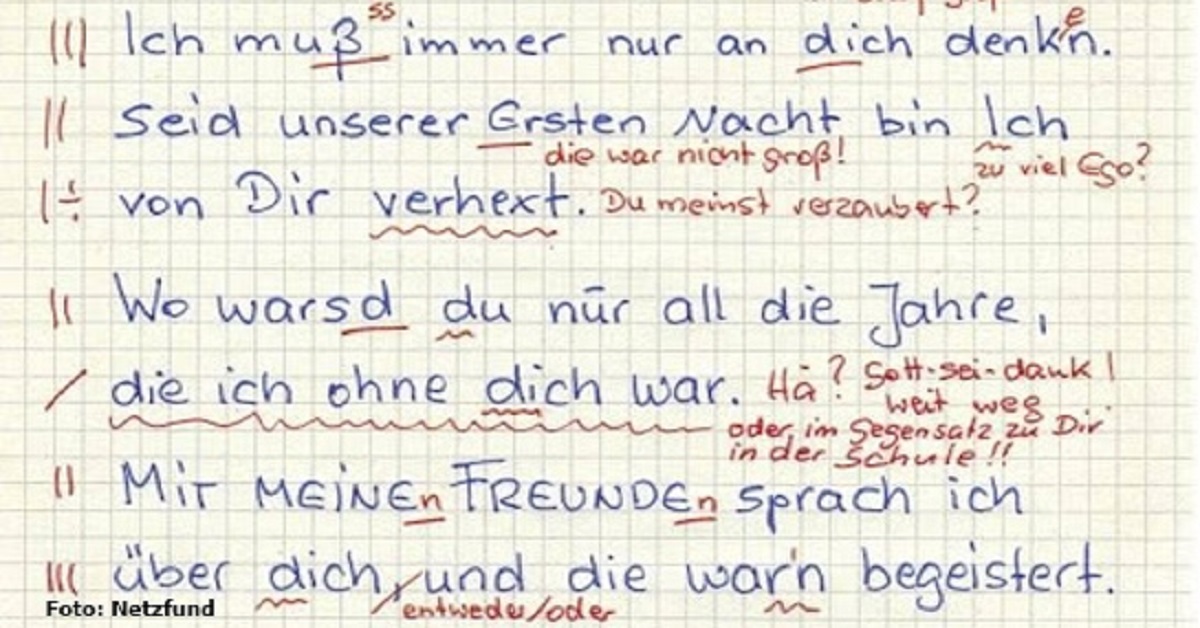 ss e
||| Ich muß immer nur an dich denk'n.
|| Seid unserer Ersten Nacht bin Ich
die war nicht groß! zu viel Ego?
|÷ von Dir verhext. Du meinst verzaubert?
|| Wo warsd du nūr all die Jahre,
/ die ich ohne dich war. Hä? Gott-sei-dank!
weit weg
oder im Gegensatz zu Dir
in der Schule!!
|| Mit MEINEn FREUNDEn sprach ich
||| über dich, und die war'n begeistert.
Foto: Netzfund entweder/oder